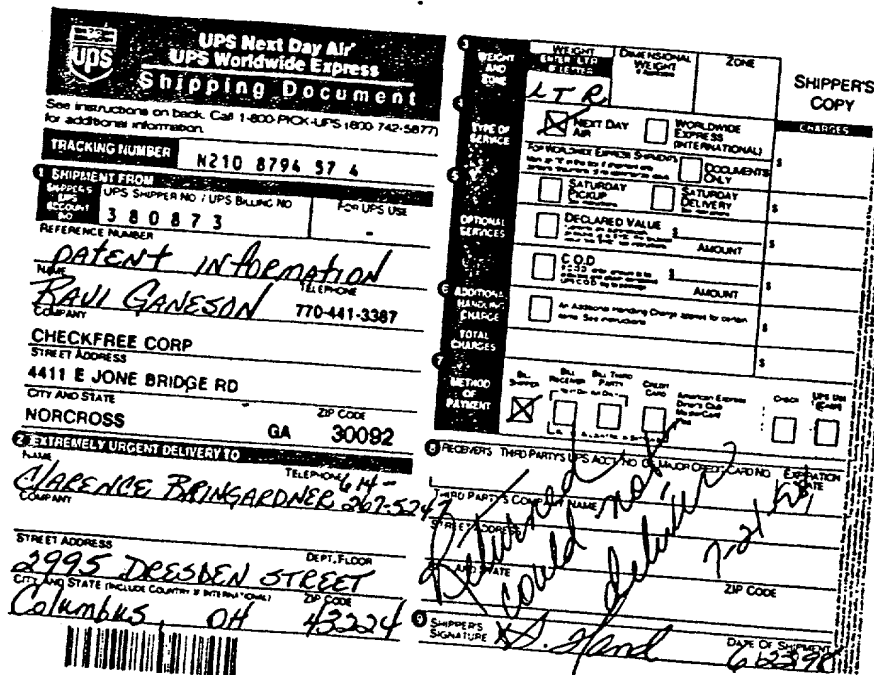 ups
UPS Next Day Air
UPS Worldwide Express
Shipping Document
See instructions on back. Call 1-800-PICK-UPS (800-742-5877)
for additional information.
TRACKING NUMBER N210 8794 57 4
1 SHIPMENT FROM
SHIPPER'S UPS ACCOUNT NO
UPS SHIPPER NO / UPS BILLING NO
FOR UPS USE
3 8 0 8 7 3
REFERENCE NUMBER
PATENT INFORMATION
NAME
TELEPHONE
RAVI GANESON 770-441-3387
COMPANY
CHECKFREE CORP
STREET ADDRESS
4411 E JONE BRIDGE RD
CITY AND STATE
ZIP CODE
NORCROSS GA 30092
2 EXTREMELY URGENT DELIVERY TO
NAME
TELEPHONE 614-
CLARENCE BRINGARDNER 267-5247
COMPANY
STREET ADDRESS
DEPT./FLOOR
2995 DRESDEN STREET
CITY AND STATE (INCLUDE COUNTRY IF INTERNATIONAL)
ZIP CODE
Columbus, OH 43224
3 WEIGHT AND ZONE
WEIGHT
ENTER LTR IF LETTER
LTR
DIMENSIONAL WEIGHT
ZONE
SHIPPER'S COPY
CHARGES
4 TYPE OF SERVICE
NEXT DAY AIR
WORLDWIDE EXPRESS (INTERNATIONAL)
$
FOR WORLDWIDE EXPRESS SHIPMENTS
DOCUMENTS ONLY
5 OPTIONAL SERVICES
SATURDAY PICKUP
SATURDAY DELIVERY
$
DECLARED VALUE $
AMOUNT
$
C.O.D. $
AMOUNT
$
6 ADDITIONAL HANDLING CHARGE
An Additional Handling Charge applies for certain items. See instructions
$
TOTAL CHARGES
$
7 METHOD OF PAYMENT
BILL SHIPPER
BILL RECEIVER
BILL THIRD PARTY
CREDIT CARD
American Express
Diner's Club
MasterCard
Visa
CHECK
8 RECEIVER'S THIRD PARTY'S UPS ACCT NO OR MAJOR CREDIT CARD NO EXPIRATION DATE
THIRD PARTY'S COMPANY NAME
STREET ADDRESS
CITY AND STATE
ZIP CODE
Returned
could not
deliver
7-21-98
9 SHIPPER'S SIGNATURE
X S. Hand
DATE OF SHIPMENT
6 23 98